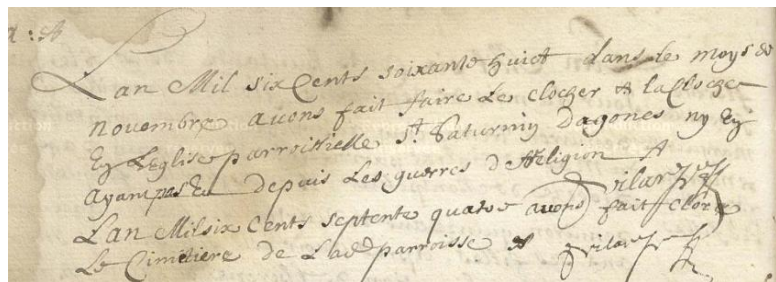 Lan Mil six Cents soixante huict dans le moys de
novembre avons fait faire Le clocher & la Cloche
En Leglise parroissielle St Saturnin Dagones ny En
ayant pas Eu depuis Les guerres de Religion
Lan Mil six Cents septente quatre avons fait Clorre
Le Cimitiere de Lad parroisse